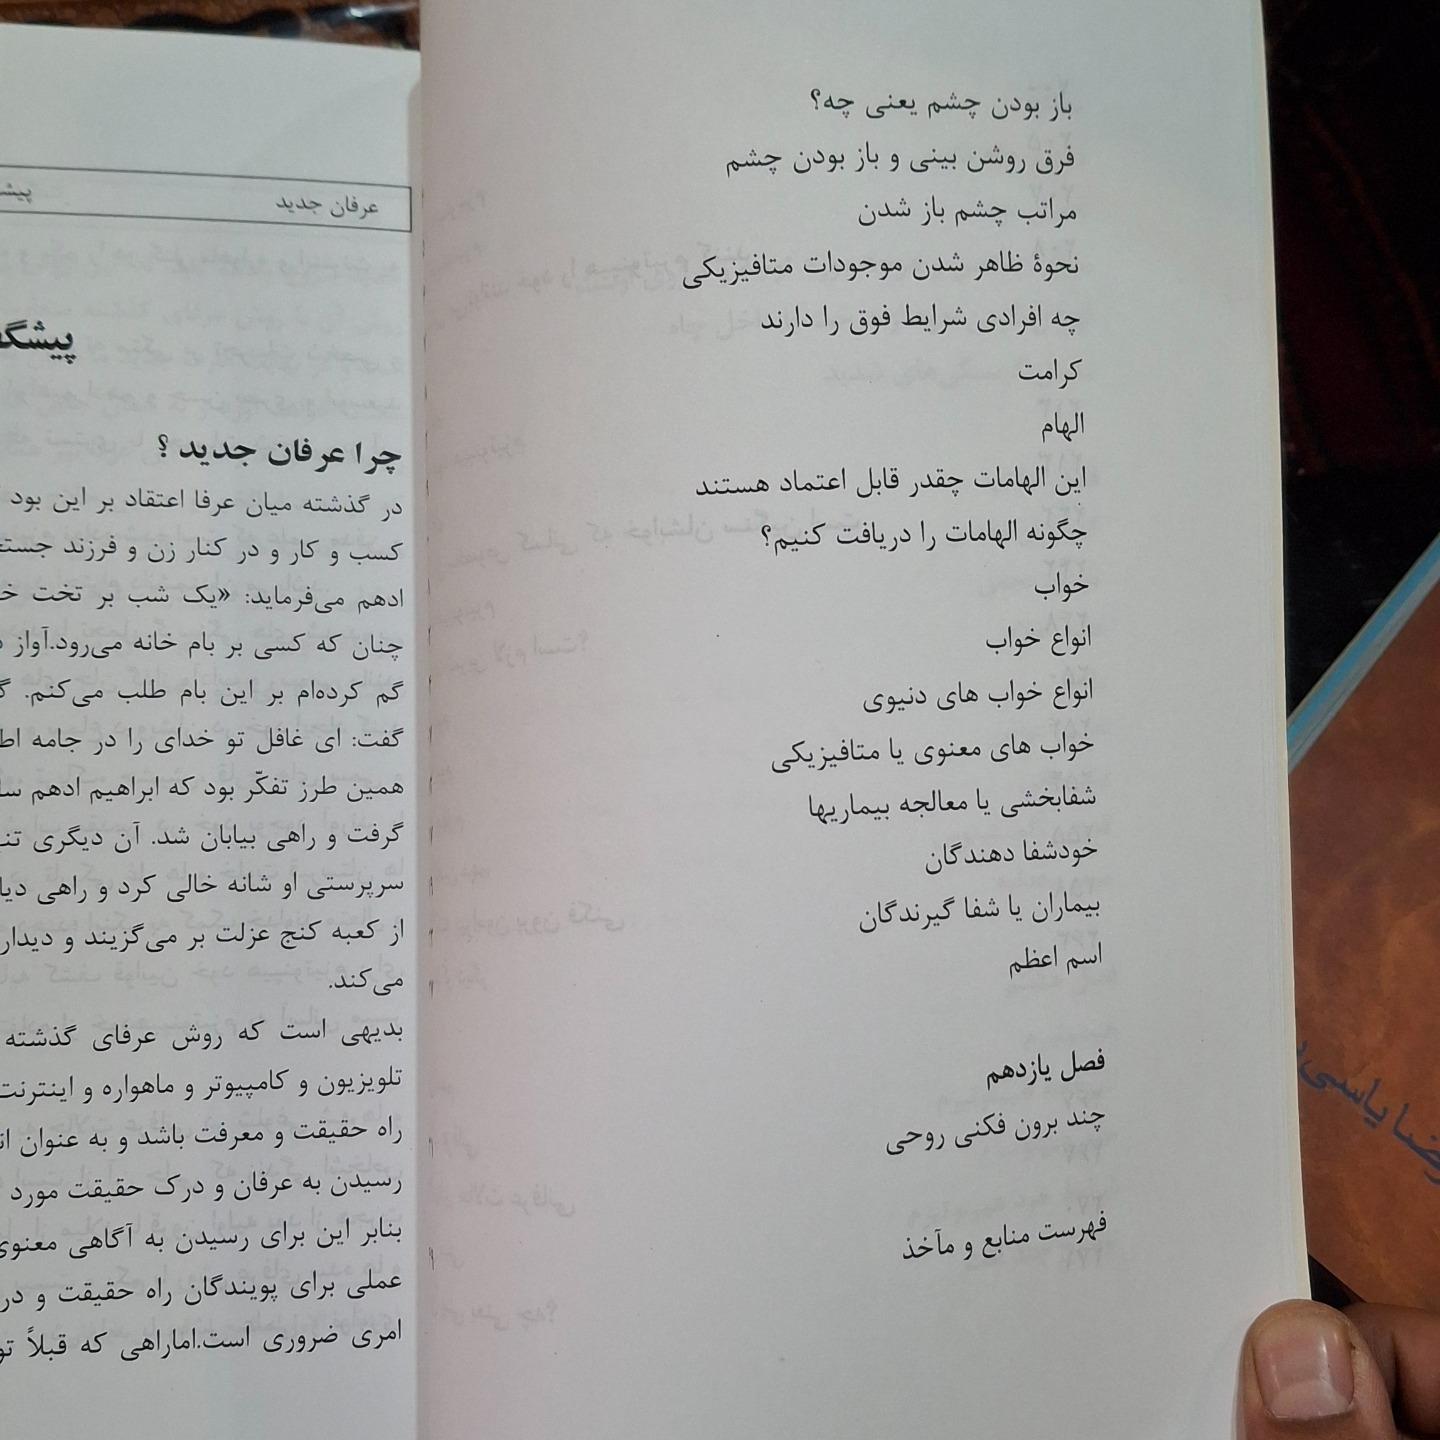 باز بودن چشم یعنی چه؟
فرق روشن بینی و باز بودن چشم
مراتب چشم باز شدن
نحوهٔ ظاهر شدن موجودات متافیزیکی
چه افرادی شرایط فوق را دارند
کرامت
الهام
این الهامات چقدر قابل اعتماد هستند
چگونه الهامات را دریافت کنیم؟
خواب
انواع خواب
انواع خواب های دنیوی
خواب های معنوی یا متافیزیکی
شفابخشی یا معالجه بیماریها
خودشفا دهندگان
بیماران یا شفا گیرندگان
اسم اعظم
فصل یازدهم
چند برون فکنی روحی
فهرست منابع و مآخذ
عرفان جدید
چرا عرفان جدید ؟
در گذشته میان عرفا اعتقاد بر این بود
کسب و کار و در کنار زن و فرزند
ادهم می‌فرماید: «یک شب بر تخت
چنان که کسی بر بام خانه می‌رود.آواز
گم کرده‌ام بر این بام طلب می‌کنم.
گفت: ای غافل تو خدای را در جامه
همین طرز تفکّر بود که ابراهیم ادهم
گرفت و راهی بیابان شد. آن دیگری
سرپرستی او شانه خالی کرد و راهی
از کعبه کنج عزلت بر می‌گزیند و دیدار
می‌کند.
بدیهی است که روش عرفای گذشته
تلویزیون و کامپیوتر و ماهواره و اینترنت
راه حقیقت و معرفت باشد و به عنوان
رسیدن به عرفان و درک حقیقت مورد
بنابر این برای رسیدن به آگاهی معنوی
عملی برای پویندگان راه حقیقت و
امری ضروری است.اماراهی که قبلاً